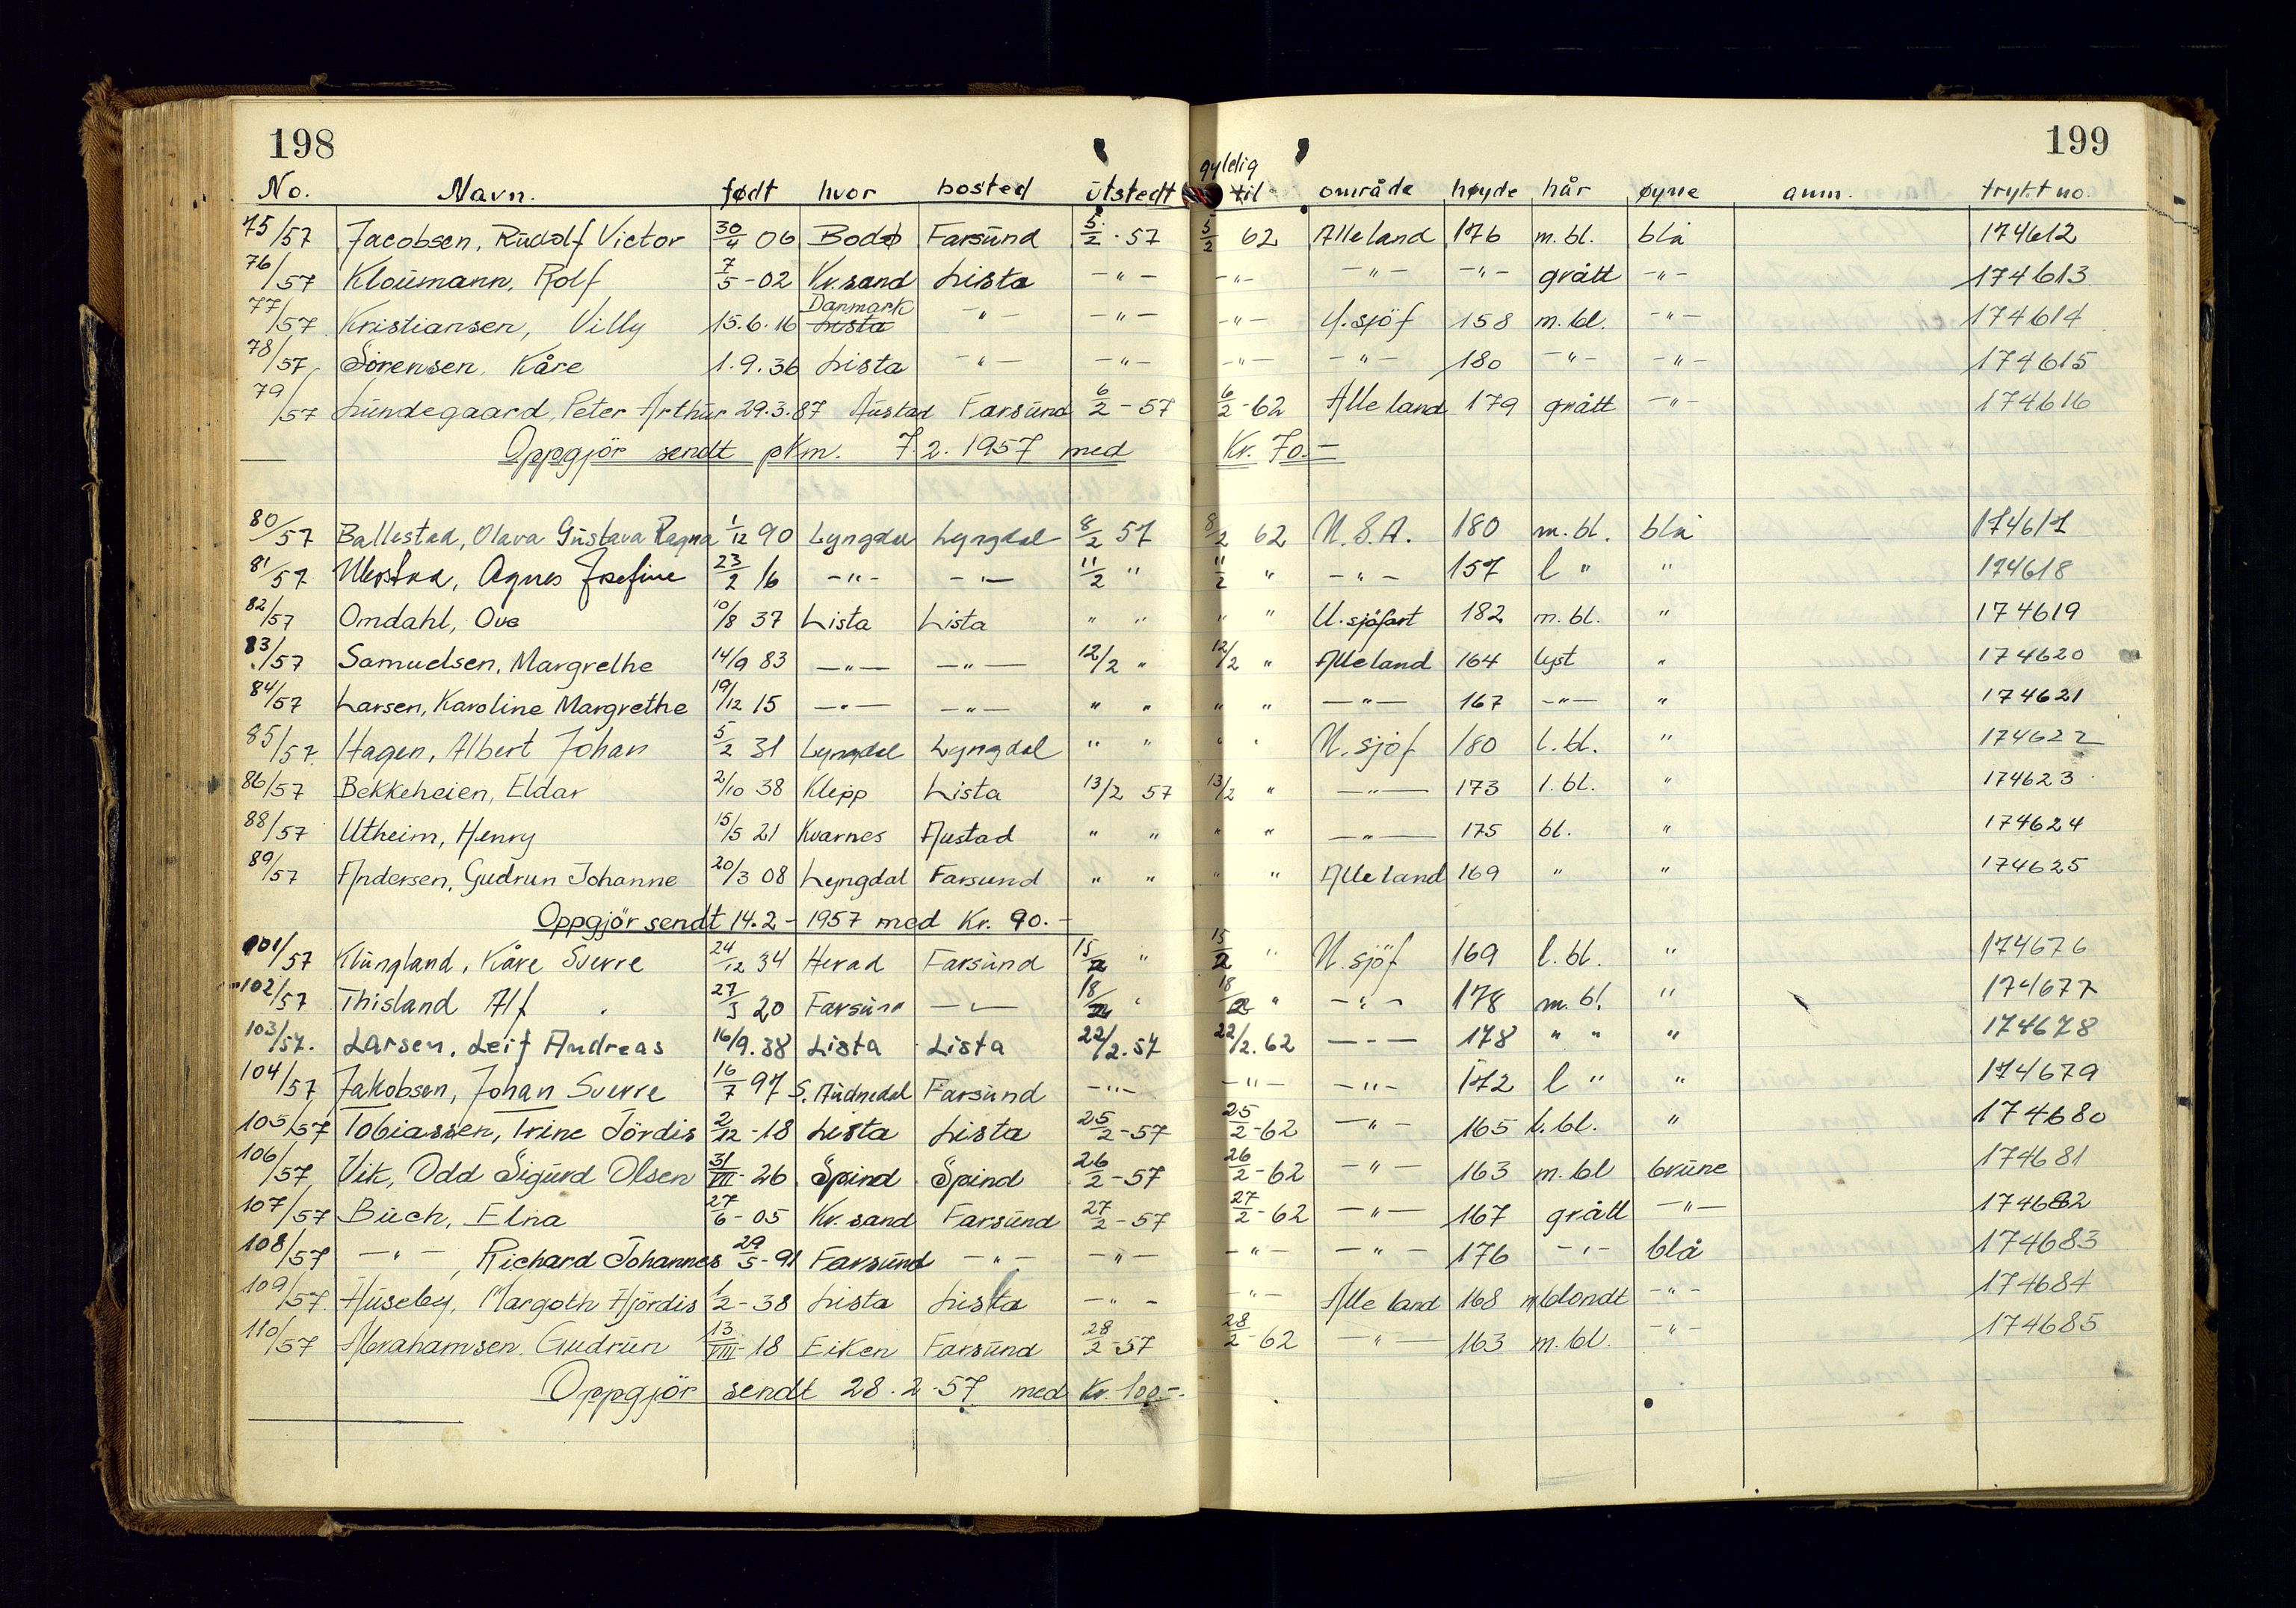 198
199
gyldig
No. Navn. født hvor bosted utstedt til område høyde hår øyne anm. trykt no.
75/57 Jacobsen, Rudolf Victor 30/4 06 Bodø Farsund 5/2 · 57 5/2 62 Alle land 176 m. bl. blå 174612
76/57 Kloumann, Rolf 7/5 - 02 Kr.sand Lista -"- -"- -"- -"- grått -"- 174613
Danmark
77/57 Kristiansen, Villy 15.6.16 Lista -"- -"- -"- U.sjöf 158 m. bl. -"- 174614
78/57 Sörensen, Kåre 1.9.36 Lista -"- -"- -"- -"- 180 -"- -"- 174615
79/57 Lundegaard, Peter Arthur 29.3.87 Austad Farsund 6/2 - 57 6/2 - 62 Alle land 179 grått -"- 174616
Oppgjör sendt pKm. 7.2.1957 med Kr. 70.-
80/57 Ballestad, Olava Gustava Ragna 1/12 90 Lyngdal Lyngdal 8/2 57 8/2 62 U.S.A. 180 m. bl. blå 174617
81/57 Agnes Josefine 23/2 16 -"- -"- 11/2 " 11/2 " -"- 157 l " " 174618
82/57 Omdahl, Ove 10/8 37 Lista Lista " " " " U.sjöfart 182 m. bl. " 174619
83/57 Samuelsen, Margrethe 14/9 83 -"- -"- 12/2 " 12/2 " Alle land 164 lyst " 174620
84/57 Larsen, Karoline Margrethe 19/12 15 -"- -"- " " " " -"- 167 -"- " 174621
85/57 Hagen, Albert Johan 5/2 31 Lyngdal Lyngdal " " " " U. sjöf 180 l. bl. " 174622
86/57 Bekkeheien, Eldar 2/10 38 Klepp Lista 13/2 57 13/2 " -"- 173 l. bl. " 174623
88/57 Utheim, Henry 15/5 21 Kvarnes Austad " " " " -"- 175 bl. " 174624
89/57 Andersen, Gudrun Johanne 20/3 08 Lyngdal Farsund " " " " Alle land 169 " " 174625
Oppgjör sendt 14.2 - 1957 med Kr. 90.-
101/57 Klungland, Kåre Sverre 24/12 34 Herad Farsund 15/2 " 15/2 " U. sjöf 169 l. bl. " 174676
102/57 Thisland Alf 27/3 20 Farsund -"- 18/2 " 18/2 " -"- 178 m. bl. " 174677
103/57. Larsen, Leif Andreas 16/9.38 Lista Lista 22/2.57 22/2.62 -"- 178 " " " 174678
104/57 Jakobsen, Johan Sverre 16/7 97 S. Audnedal Farsund -"- -"- -"- 172 l " " 174679
105/57 Tobiassen, Trine Jördis 2/12 - 18 Lista Lista 25/2 - 57 25/2 - 62 -"- 165 l. bl. " 174680
106/57 Vik, Odd Sigurd Olsen 31/VII - 26 Spind Spind 26/2 - 57 26/2 - 62 -"- 163 m. bl brune 174681
107/57 Buch, Elna 27/6 - 05 Kr.sand Farsund 27/2 - 57 27/2 - 62 -"- 167 grått -"- 174682
108/57 -"-, Richard Johannes 29/5 - 91 Farsund -"- -"- -"- -"- 176 -"- blå 174683
109/57 Huseby, Margoth Hjördis 1/2 - 38 Lista Lista -"- -"- Alle land 168 m blondt -"- 174684
110/57 Abrahamsen, Gudrun 13/VIII - 18 Eiken Farsund 28/2 - 57 28/2 - 62 -"- 163 m. bl. -"- 174685
Oppgjör sendt 28.2-57 med Kr. 100.-